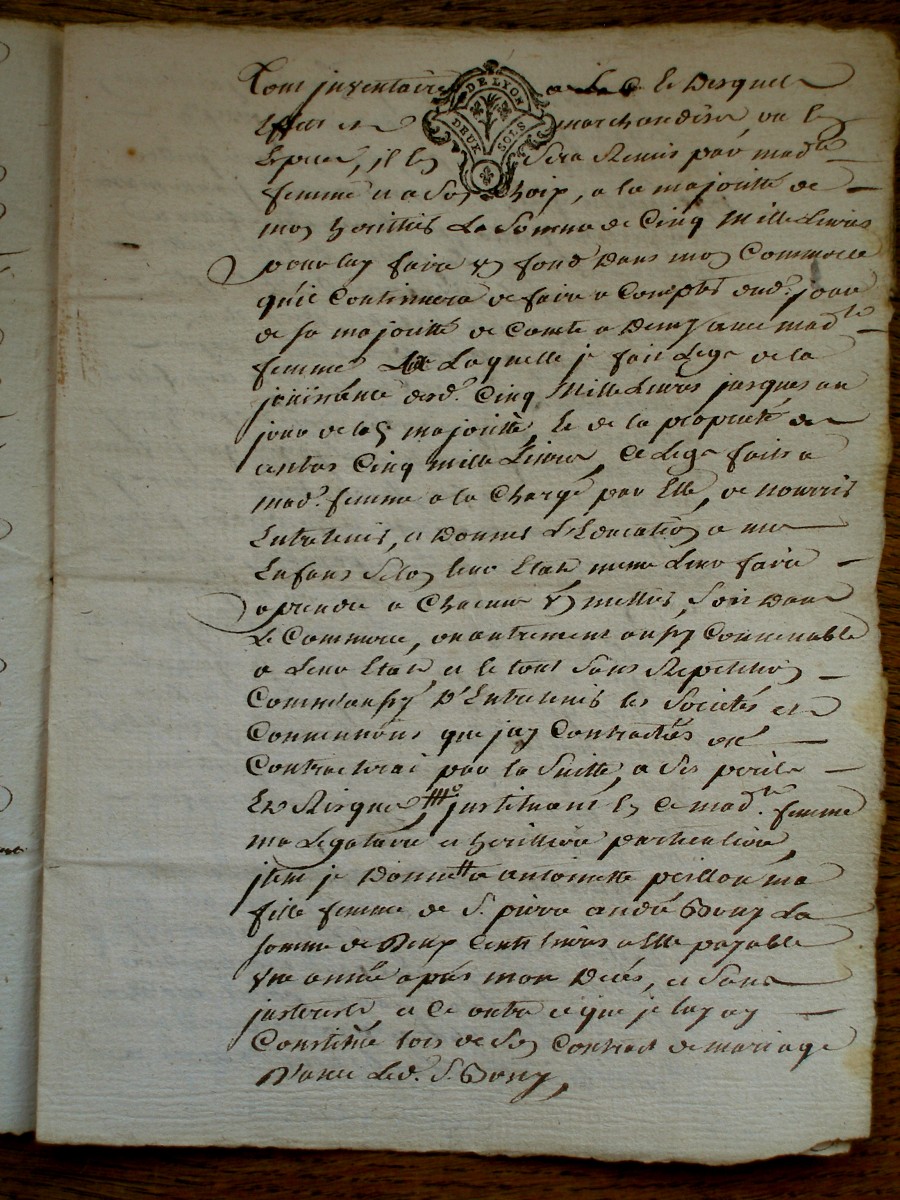 Tout jnventaire
DE LYON
DEUX SOLS
Effets et marchandises, ou les
Especes, il les sera Remis par mad.te
femme et a son choix, a la majorité de
mon heritier La Somme de Cinq Mille Livres
pour luy faire un fond Dans mon Commerce
qu'il Continuera de faire a Compter dud. jour
de sa majorité de Comte a Demy avec mad.te
femme a Laquelle je fais Legs de la
jouissance desd. Cinq Mille Livres jusques au
jour de lad majorité, Et de la proprieté des
autres Cinq mille Livres, Ce Legs faits a
mad. femme a la Charge par Elle, de nourrir
Entretenir, et Donner L'Education a mes
Enfans Selon leur Etat meme Leur faire
aprendre a Chacun un mettier, Soit Dans
Le Commerce, ou autrement aussy Convenable
a Leur Etat, et le tout Sans Repetition
Comme aussy D'Entretenir les Societés et
Conventions que jay Contractées ou
Contracterai par la Suitte, a Ses perils
Et Risques, jnstituant En Ce mad.te femme
ma Legataire et heritiere particuliere,
jtem je Donne a antoinette peillon ma
fille femme de S. pierre andré Bony La
somme de Deux Cents livres a Elle payable
une année après mon Decés, et Sans
jnterests, et Ce outre ce que je luy ay
Constitué lors de Son Contract de mariage
D'avec Led. S. Bony,